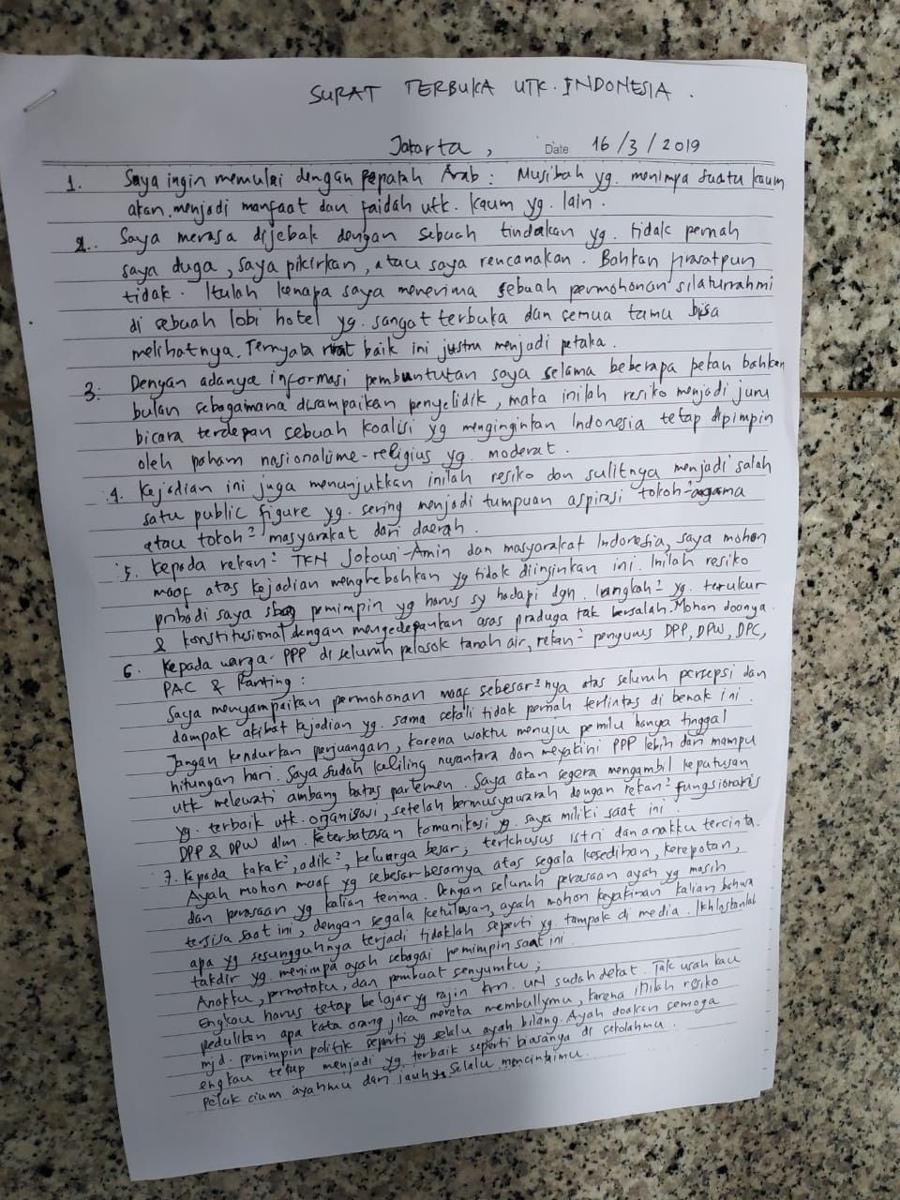 SURAT TERBUKA UTK. INDONESIA.
Jakarta, Date 16/3/2019
1. Saya ingin memulai dengan pepatah Arab: Musibah yg. menimpa suatu kaum
akan menjadi manfaat dan faidah utk. kaum yg. lain.
2. Saya merasa dijebak dengan sebuah tindakan yg. tidak pernah
saya duga, saya pikirkan, atau saya rencanakan. Bahkan firasatpun
tidak. Itulah kenapa saya menerima sebuah permohonan silaturrahmi
di sebuah lobi hotel yg. sangat terbuka dan semua tamu bisa
melihatnya. Ternyata niat baik ini justru menjadi petaka.
3. Dengan adanya informasi pembuntutan saya selama beberapa pekan bahkan
bulan sebagaimana disampaikan penyelidik, maka inilah resiko menjadi juru
bicara terdepan sebuah koalisi yg menginginkan Indonesia tetap dipimpin
oleh paham nasionalime-religius yg. moderat.
4. Kejadian ini juga menunjukkan inilah resiko dan sulitnya menjadi salah
satu public figure yg. sering menjadi tumpuan aspirasi tokoh² agama
atau tokoh² masyarakat dari daerah.
5. Kepada rekan² TKN Jokowi-Amin dan masyarakat Indonesia, saya mohon
maaf atas kejadian menghebohkan yg tidak diinginkan ini. Inilah resiko
pribadi saya sbg pemimpin yg harus sy hadapi dgn. langkah² yg. terukur
& konstitusional dengan mengedepankan asas praduga tak bersalah. Mohon doanya.
6. Kepada warga PPP di seluruh pelosok tanah air, rekan² pengurus DPP, DPW, DPC,
PAC & Ranting:
Saya menyampaikan permohonan maaf sebesar²nya atas seluruh persepsi dan
dampak akibat kejadian yg. sama sekali tidak pernah terlintas di benak ini.
Jangan kendurkan perjuangan, karena waktu menuju pemilu hanya tinggal
hitungan hari. Saya sudah keliling nusantara dan meyakini PPP lebih dari mampu
utk melewati ambang batas parlemen. Saya akan segera mengambil keputusan
yg. terbaik utk. organisasi, setelah bermusyawarah dengan rekan² fungsionaris
DPP & DPW dlm. keterbatasan komunikasi yg. saya miliki saat ini.
7. Kepada kakak², adik², keluarga besar; terkhusus istri dan anakku tercinta.
Ayah mohon maaf yg sebesar besarnya atas segala kesedihan, kerepotan,
dan perasaan yg kalian terima. Dengan seluruh perasaan ayah yg masih
tersisa saat ini, dengan segala ketulusan, ayah mohon keyakinan kalian bahwa
apa yg sesungguhnya terjadi tidaklah seperti yg. tampak di media. Ikhlaskanlah
takdir yg. menimpa ayah sebagai pemimpin saat ini.
Anakku, permataku, dan pembuat senyumku;
Engkau harus tetap belajar yg rajin krn. UN sudah dekat. Tak usah kau
pedulikan apa kata orang jika mereka membullymu, karena inilah resiko
mjd. pemimpin politik seperti yg selalu ayah bilang. Ayah doakan semoga
engkau tetap menjadi yg. terbaik seperti biasanya di sekolahmu.
Peluk cium ayahmu dari jauh yg selalu mencintaimu.